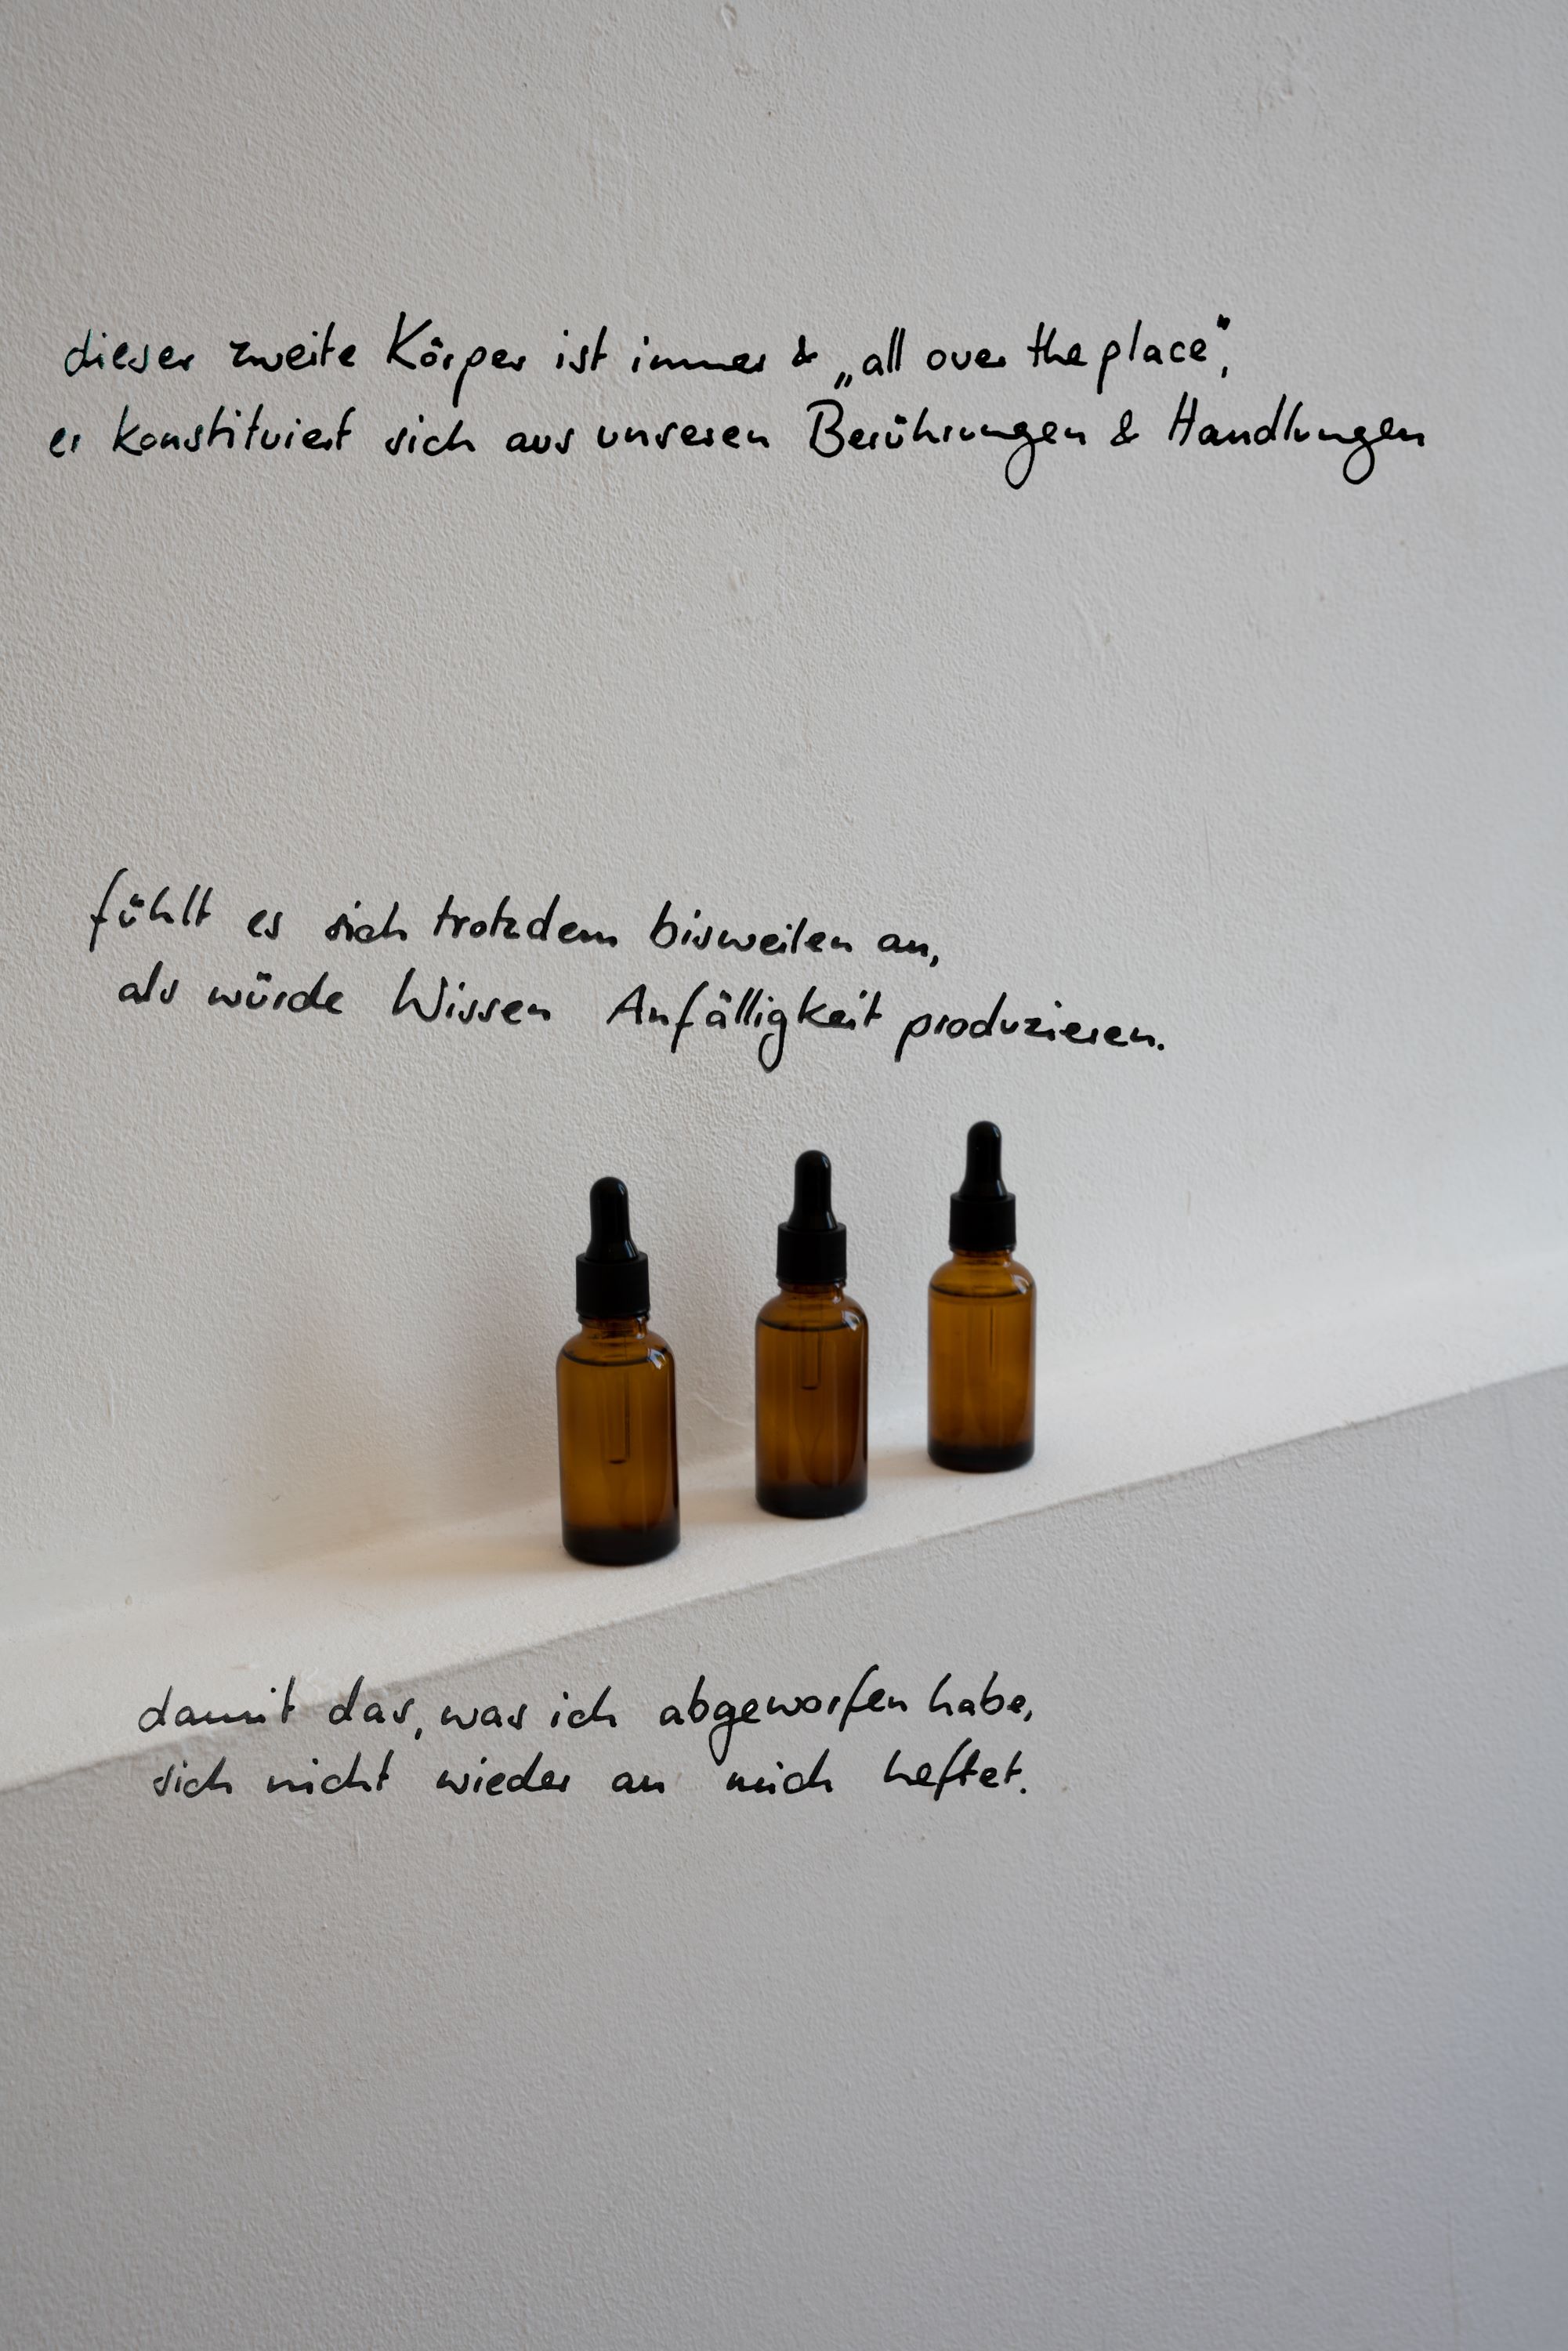 dieser zweite Körper ist immer & „all over the place“,
er konstituiert sich aus unseren Berührungen & Handlungen
fühlt es sich trotzdem bisweilen an,
als würde Wissen Anfälligkeit produzieren.
damit das, was ich abgeworfen habe,
sich nicht wieder an mich heftet.